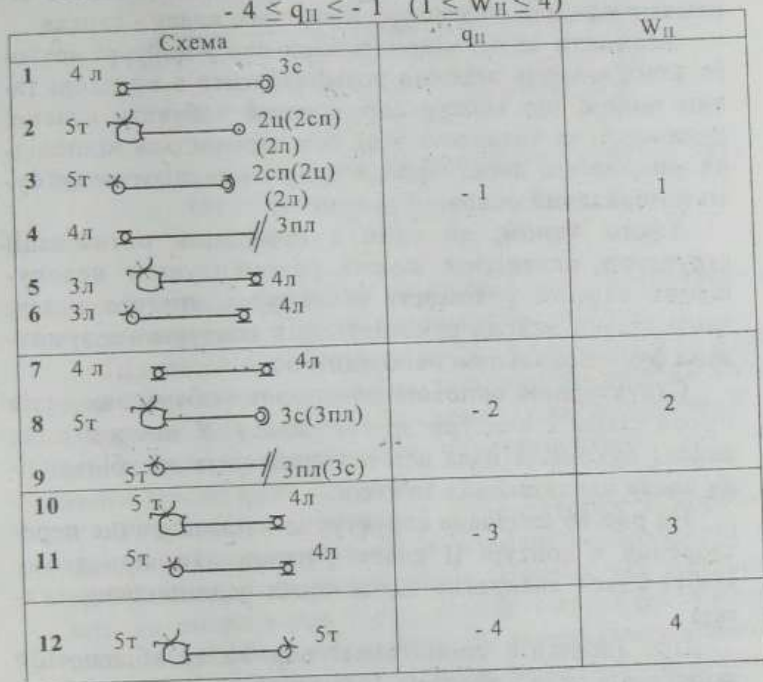 - 4 ≤ qII ≤ - 1 (1 ≤ WII ≤ 4)
Схема qII WII
1 4 л 3с
2 5т 2ц(2сп)
(2л)
3 5т 2сп(2ц)
(2л)
- 1 1
4 4л 3пл
5 3л 4л
6 3л 4л
7 4 л 4л
8 5т 3с(3пл) - 2 2
9 5т 3пл(3с)
10 5 т 4л
- 3 3
11 5т 4л
12 5т 5т - 4 4